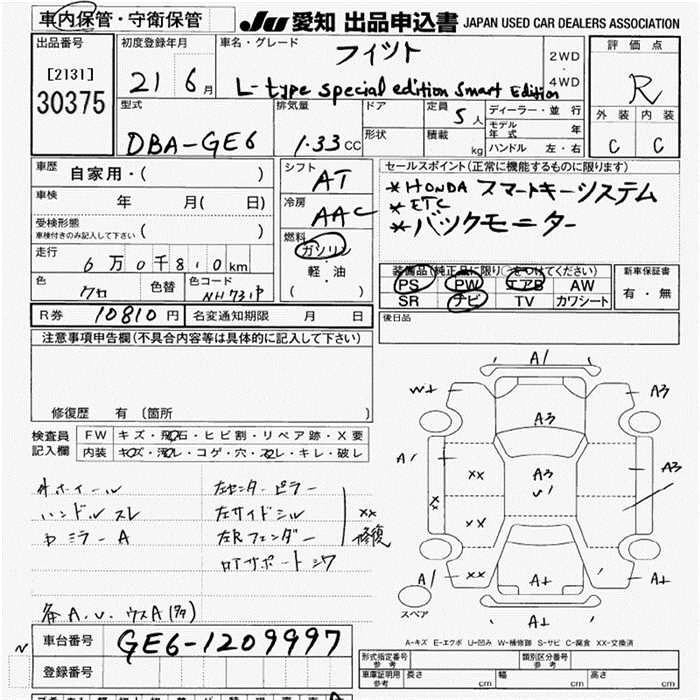 車内保管・守衛保管
JU 愛知 出品申込書 JAPAN USED CAR DEALERS ASSOCIATION
出品番号
[2131]
30375
初度登録年月
21 6月
車名・グレード
フィット
L-type special edition Smart Edition
2WD
・
4WD
評価点
R
外装 内装
C C
型式
DBA-GE6
排気量
1.33CC
ドア
形状
定員 5人
積載 kg
ディーラー・並行
モデル年式 年
ハンドル 左・右
車歴 自家用・( )
車検 年 月( 日)
受検形態
車検付きのみ記入して下さい ( )
走行 6万0千8,0km
色 クロ
色替
色コード NH731P
シフト AT
冷房 AAC
燃料
ガソリン
・
軽・油
( )
セールスポイント(正常に機能するものに限ります)
*HONDA スマートキーシステム
*ETC
*バックモニター
装備品(純正品に限り○をつけてください)
PS PW エアB AW
SR ナビ TV カワシート
新車保証書
有・無
R券 10810円
名変通知期限 月 日
後日品
注意事項申告欄(不具合内容等は具体的に記入して下さい)
修復歴 有 (箇所 )
検査員
記入欄
FW キズ・飛石・ヒビ割・リペア跡・X要
内装 キズ・汚レ・コゲ・穴・スレ・キレ・破レ
ホイール
ハンドルスレ
ミラーA
左センターピラー
左サイドシル
左Rフェンダー
サポート
xx
修復
A.U.
A1
W+
A3
A3
A1
A3
U1
A3
xx
xx
xx
xx
A1
A+
A+
A+
スペア
A-キズ E-エクボ U-凹み W-補修跡 S-サビ C-腐食 XX-交換済
車台番号 GE6-1209997
登録番号
形式指定番号
参考
類別区分番号
参考
車庫証明用
参考
長さ cm
幅 cm
高さ cm